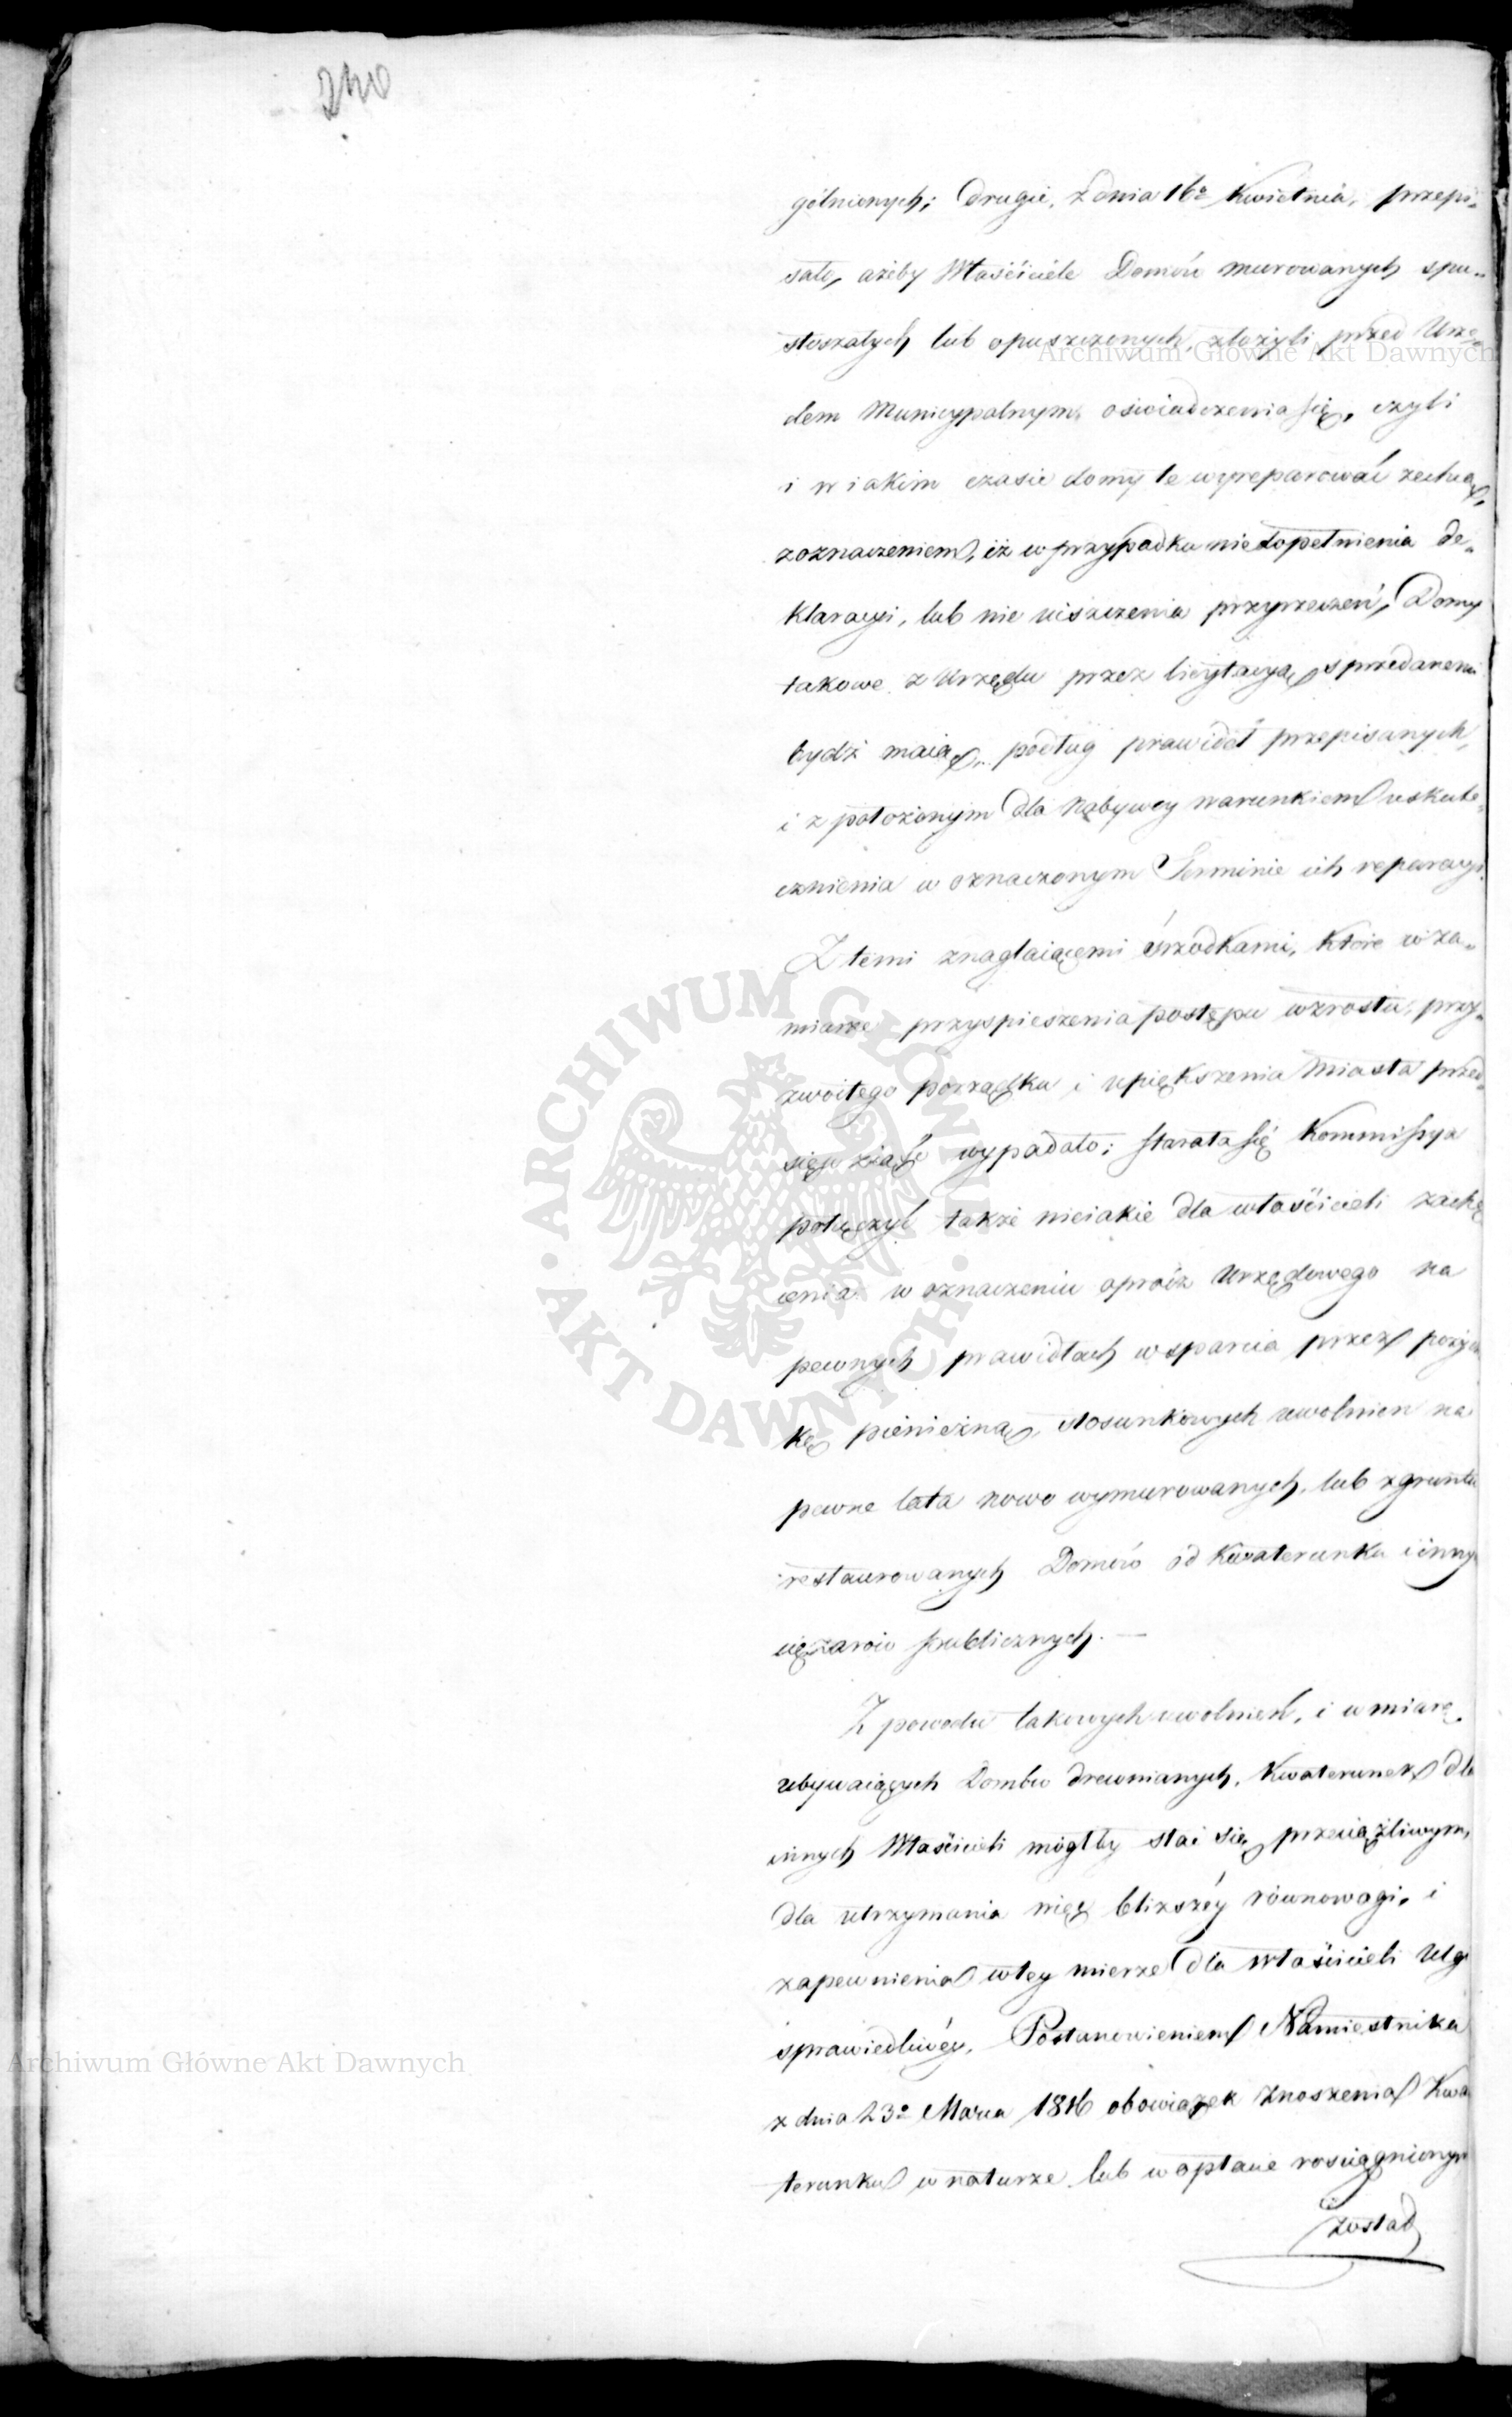 240
gólnionych; drugie, z dnia 16º Kwietnia, przepi„
sało, ażeby Właściciele Domów murowanych spu„
stoszałych lub opuszczonych, złożyli przed Urzę„
dem Municypalnym oświadczenia się, czyli
i w iakim czasie domy te wyreparować zechcą,
zoznaczeniem, iż w przypadku niedopełnienia de„
klaracyi, lub nie uiszczenia przyrzeczeń, Domy
takowe z Urzędu przez licytacyą sprzedanemi
bydź maią, podług prawideł przepisanych,
i z położonym dla Nabywcy warunkiem uskute„
cznienia w oznaczonym Terminie ich reparacyi.
Z temi znaglaiącemi śrzodkami, które w za„
miarze przyspieszenia postępu wzrostu, przy„
zwoitego porządku i upiększenia Miasta przed„
sięwziąść wypadało; starała się Kommissya
połączyć także nieiakie dla właścicieli zachę
cenia w oznaczeniu oprócz Urzędowego na
pewnych prawidłach wsparcia przez pożycz
kę pieniężną, stosunkowych uwolnien na
pewne lata nowo wymurowanych, lub z gruntu
restaurowanych Domów od Kwaterunku i innych
ciężarów publicznych. —
Z powodu takowych uwolnień, i w miarę
ubywaiących Domów drewnianych, Kwaterunek dla
innych Właścicieli mógłby stać się przeciążliwym,
dla utrzymania więc bliższéy równowagi, i
zapewnienia w tey mierze dla właścicieli Ulgi
sprawiedliwéy, Postanowieniem Namiestnika
z dnia 23º Marca 1816 obowiązek Znoszenia Kwa
terunku w naturze lub w opłacie rosciągnionym
został
Archiwum Główne Akt Dawnych
ARCHIWUM GŁÓWNE · AKT DAWNYCH ·
Archiwum Główne Akt Dawnych